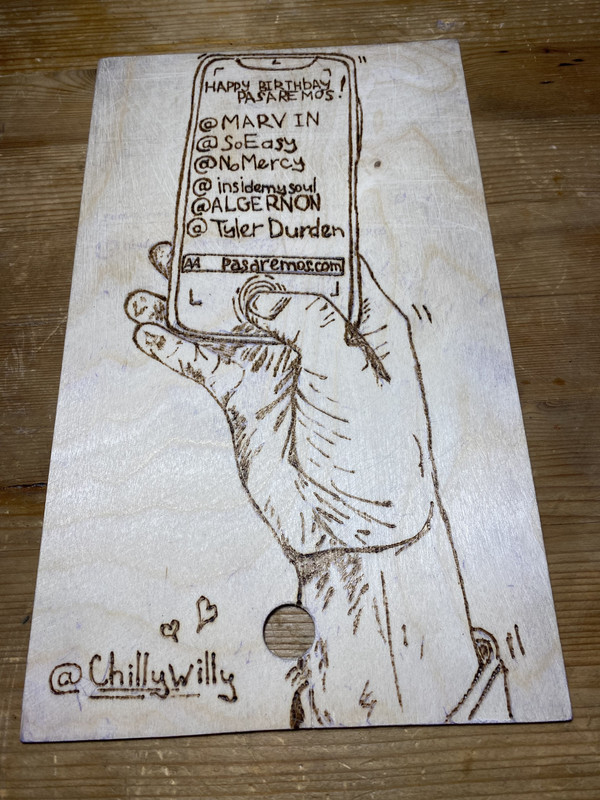 HAPPY BIRTHDAY
PASAREMOS!
@MARVIN
@SoEasy
@NoMercy
@insidemysoul
@ALGERNON
@Tyler Durden
AA pasaremos.com
@ChillyWilly